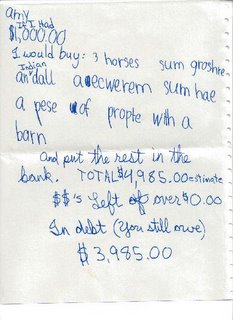 amy
If I Had
$1,000.00
I would buy: 3 horses sum groshre
Indian
an dall a ecwerem sum hae
a pese of propte with a
barn
and put the rest in the
bank. TOTAL $4,985.00 estimate
$$'s Left of over $0.00
In debt (you still owe)
$3,985.00